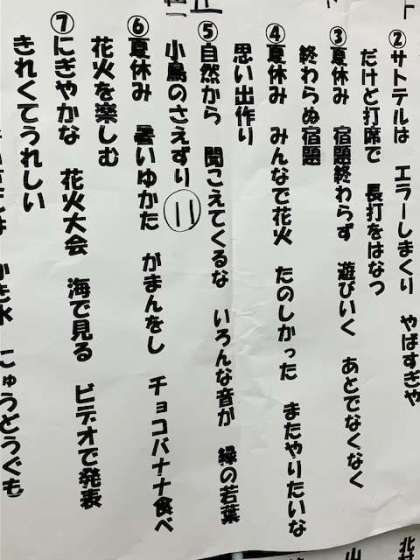 ②サトテルは エラーしまくり やばすぎや
だけど打席で 長打をはなつ
③夏休み 宿題終わらず 遊びいく あとでなくなく
終わらぬ宿題
④夏休み みんなで花火 たのしかった またやりたいな
思い出作り
⑤自然から 聞こえてくるな いろんな音が 緑の若葉
小鳥のさえずり ⑪
⑥夏休み 暑いゆかた がまんをし チョコバナナ食べ
花火を楽しむ
⑦にぎやかな 花火大会 海で見る ビデオで発表
きれくてうれしい
かき氷 にゅうどうぐも